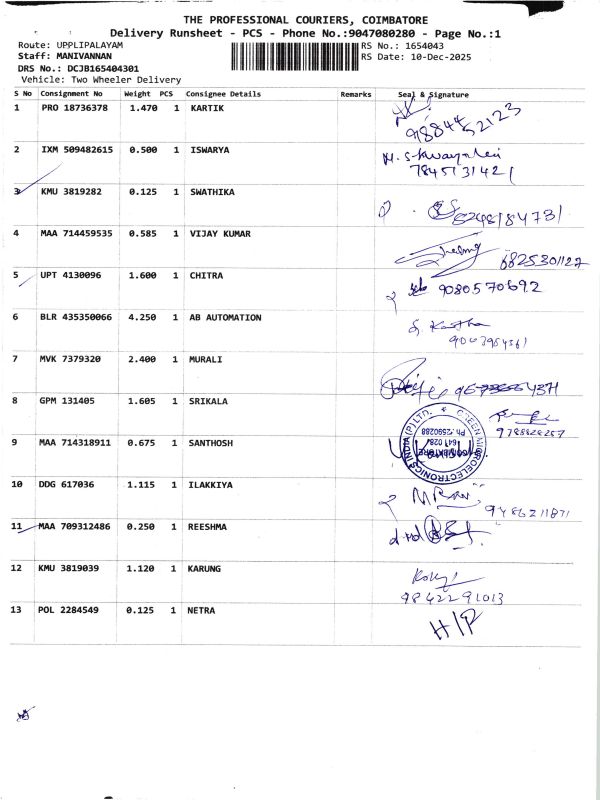 THE PROFESSIONAL COURIERS, COIMBATORE
Delivery Runsheet - PCS - Phone No.:9047080280 - Page No.:1
Route: UPPLIPALAYAM
Staff: MANIVANNAN
DRS No.: DCJB165404301
Vehicle: Two Wheeler Delivery
RS No.: 1654043
RS Date: 10-Dec-2025
S No Consignment No Weight PCS Consignee Details Remarks Seal & Signature
1 PRO 18736378 1.470 1 KARTIK
9884452123
2 IXM 509482615 0.500 1 ISWARYA
7845131421
3 KMU 3819282 0.125 1 SWATHIKA
8248184731
4 MAA 714459535 0.585 1 VIJAY KUMAR
6825301127
5 UPT 4130096 1.600 1 CHITRA 9080570692
6 BLR 435350066 4.250 1 AB AUTOMATION
7 MVK 7379320 2.400 1 MURALI
8 GPM 131405 1.605 1 SRIKALA
GREEN MICROELECTRONICS INDIA (P) LTD.
COIMBATORE
641 028
Ph:2590288
9 MAA 714318911 0.675 1 SANTHOSH
10 DDG 617036 1.115 1 ILAKKIYA
9486211871
11 MAA 709312486 0.250 1 REESHMA
12 KMU 3819039 1.120 1 KARUNG
9842291013
13 POL 2284549 0.125 1 NETRA
H/P